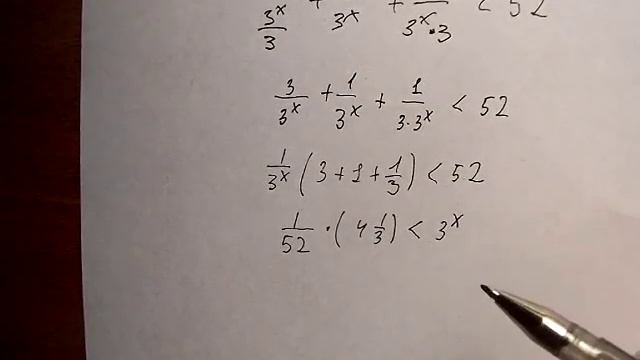 3^x/3 + 3^x + 3^x·3 < 52
3/3^x + 1/3^x + 1/(3·3^x) < 52
1/3^x (3+1+1/3) < 52
1/52 · (4 1/3) < 3^x